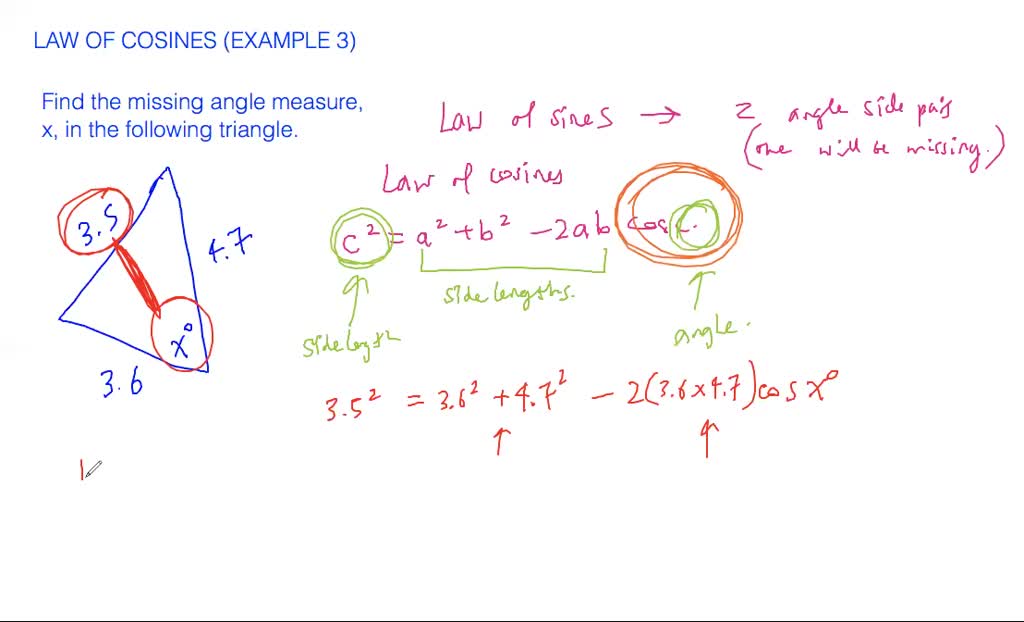 LAW OF COSINES (EXAMPLE 3)
Find the missing angle measure,
x, in the following triangle.
Law of sines → 2 angle side pairs
(one will be missing.)
Law of cosines
c² = a² + b² - 2ab cos C.
side lengths.
side length
angle.
3.5
4.7
x°
3.6
3.5² = 3.6² + 4.7² - 2(3.6 x 4.7) cos x°